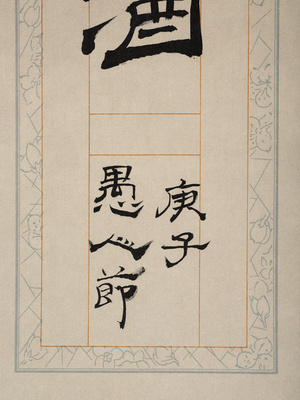 酒
庚子
愚人節